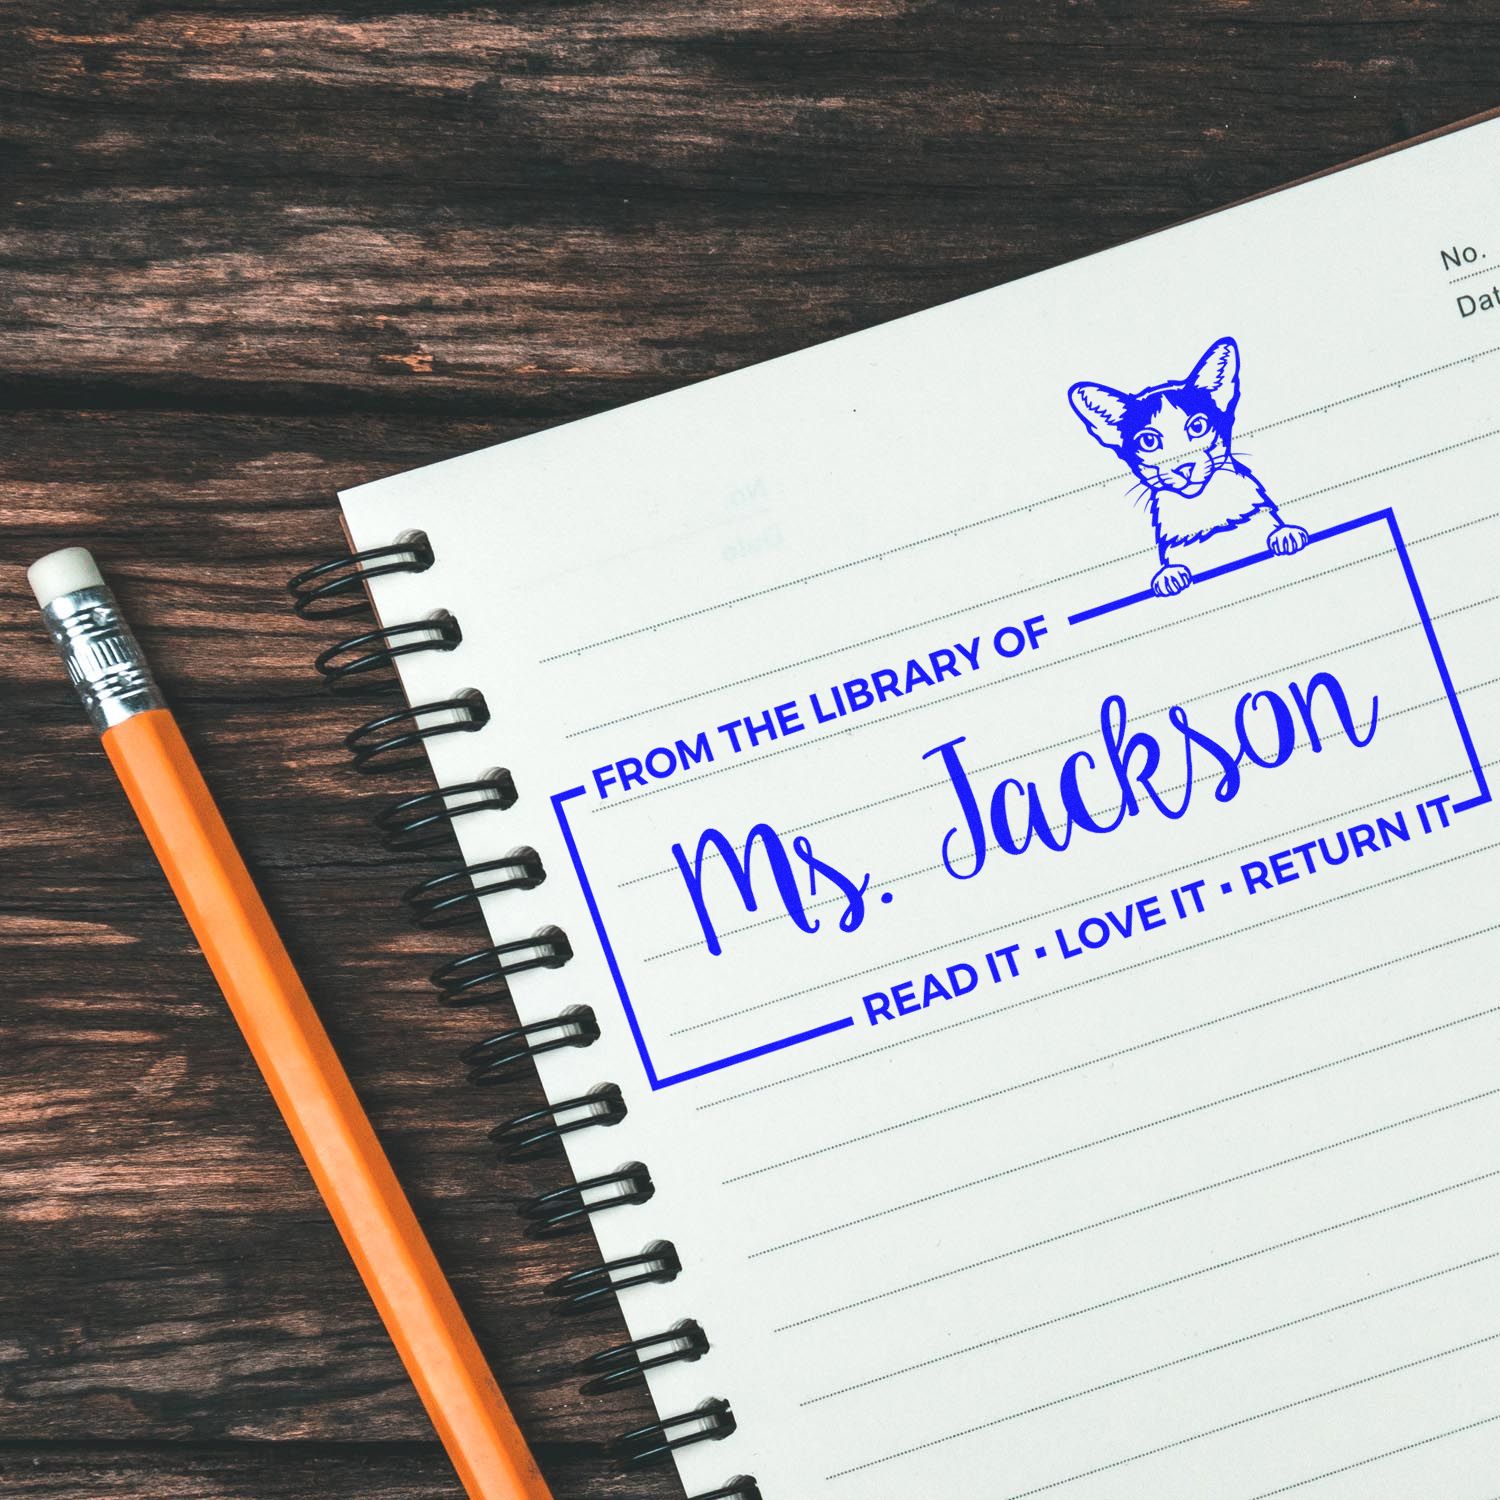 No.
FROM THE LIBRARY OF
Ms. Jackson
READ IT ▪ LOVE IT ▪ RETURN IT